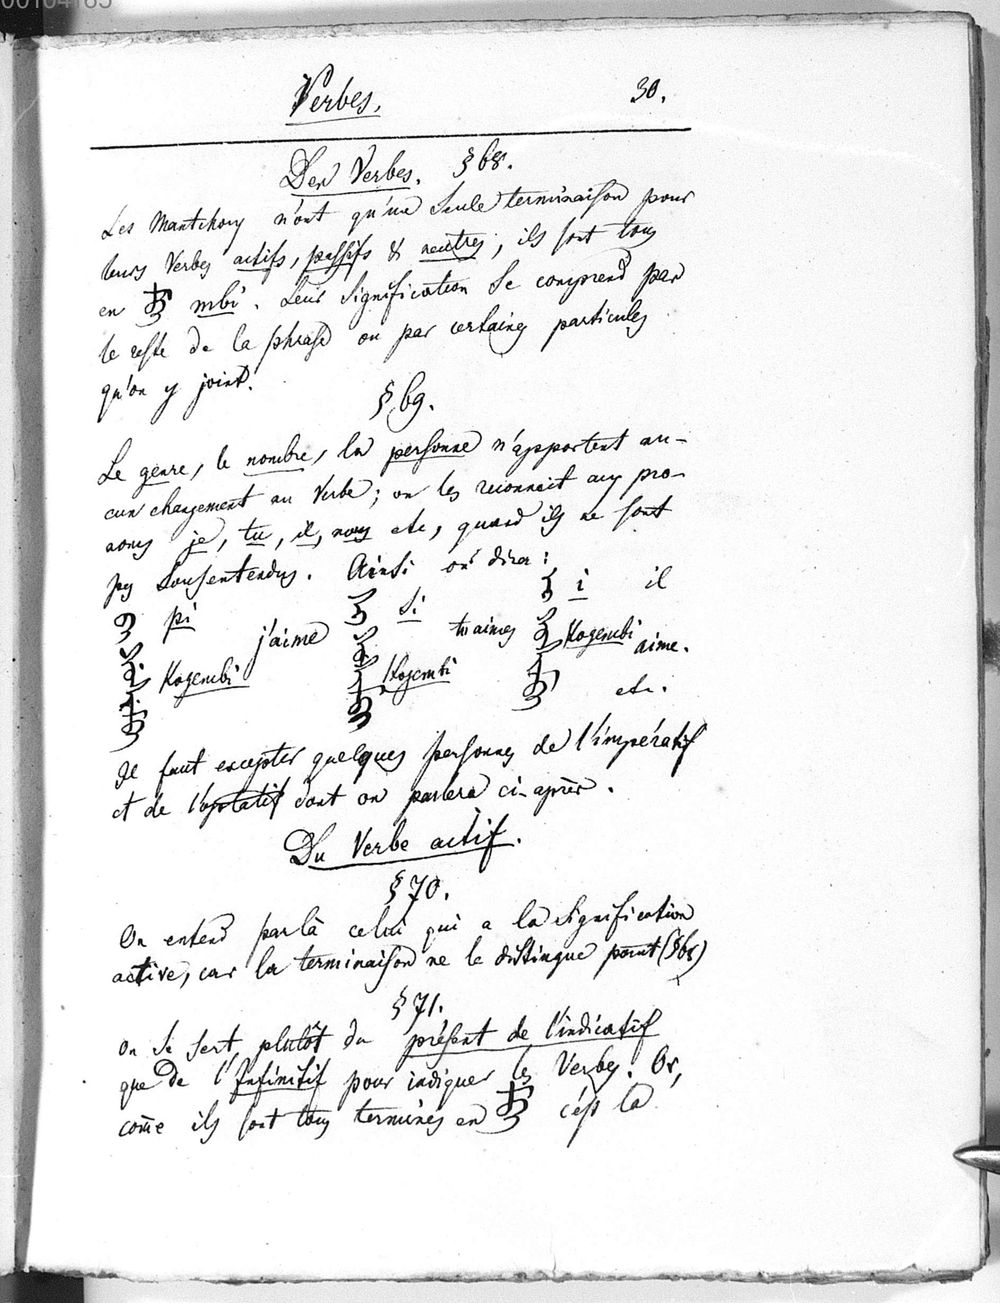 00104165
Verbes. 30.
Des Verbes. § 68.
Les Mantchoux n'ont qu'une seule terminaison pour
leurs Verbes actifs, passifs & neutres; ils sont tous
en ᠮᠪᡳ mbi. Leur signification se comprend par
le reste de la phrase ou par certaines particules
qu'on y joint.
§ 69.
Le genre, le nombre, la personne n'apportent au-
cun changement au Verbe; on les reconnoit aux pro-
noms je, tu, il, nous etc, quand ils ne sont
pas sousentendus. Ainsi on dira:
pi Kogembi j'aime si Kogembi tu aimes i Kogembi il aime.
etc.
Il faut excepter quelques personnes de l'impératif
et de l'optatif dont on parlera ci-après.
Du Verbe actif.
§ 70.
On entend par là celui qui a la signification
active, car la terminaison ne le distingue point (§ 68)
§ 71.
On se sert plutôt du présent de l'indicatif
que de l'Infinitif pour indiquer les Verbes. Or,
come ils sont tous terminés en ᠮᠪᡳ c'est la